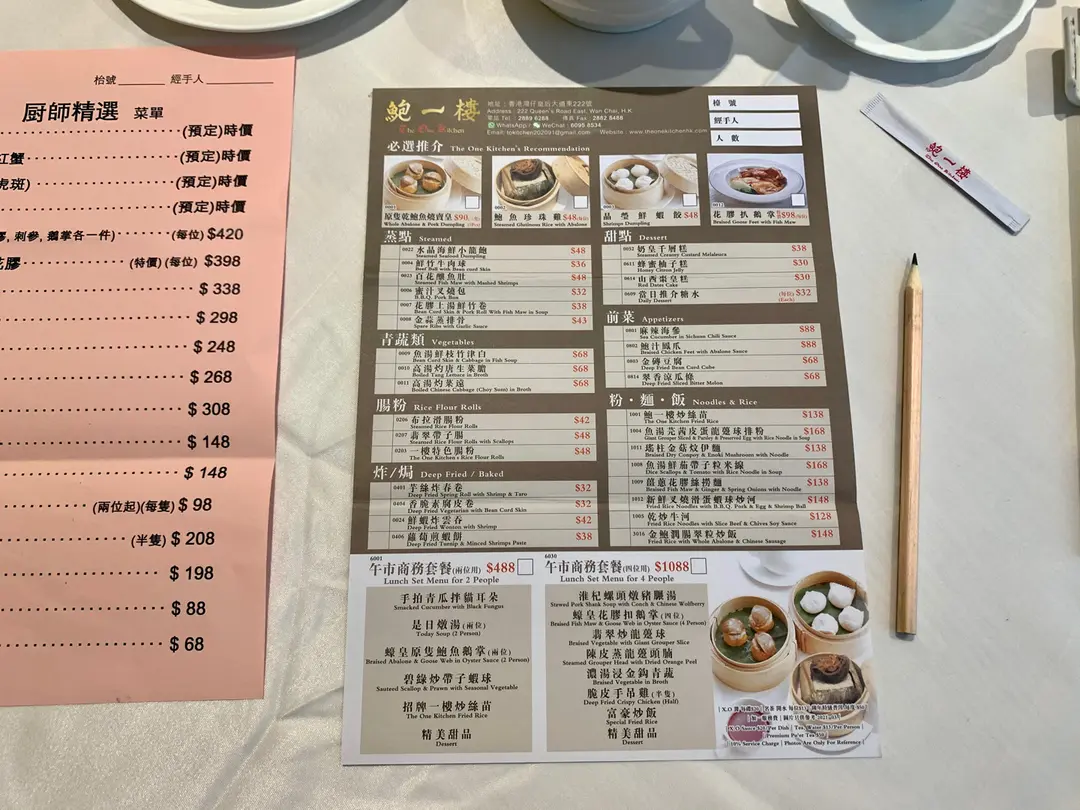 枱號 經手人
厨師精選 菜單
(預定)時價
紅蟹 (預定)時價
虎斑) (預定)時價
(預定)時價
刺參, 鵝掌各一件) (每位) $420
花膠 (特價) (每位) $398
$ 338
$ 298
$ 248
$ 268
$ 308
$ 148
$ 148
(兩位起)(每隻) $ 98
(半隻) $ 208
$ 198
$ 88
$ 68
鮑一樓
The One Kitchen
地址：香港灣仔皇后大道東222號
Address : 222 Queen's Road East, Wan Chai, H.K
電話 Tel : 2889 6268 傳真 Fax : 2862 8488
WhatsApp / WeChat : 6099 8534
Email: tokitchen202091@gmail.com Website : www.theonekitchenhk.com
檯 號
經手人
人 數
必選推介 The One Kitchen's Recommendation
0001
原隻乾鮑魚燒賣皇 $90
Whole Abalone & Pork Dumpling
0002
鮑魚珍珠雞 $48
Steamed Glutinous Rice with Abalone
晶瑩鮮蝦餃 $48
Shrimp Dumpling
0012
花膠扒鵝掌 $98
Braised Goose Feet with Fish Maw
蒸點 Steamed
0022 水晶海鮮小籠飽 $48
Steamed Seafood Dumpling
0004 鮮竹牛肉球 $36
Beef Ball with Bean curd Skin
0023 百花釀魚肚 $48
Steamed Fish Maw with Mashed Shrimps
0006 蜜汁叉燒包 $32
B.B.Q. Pork Bun
0007 花膠上湯鮮竹卷 $38
Bean Curd Skin & Pork Roll With Fish Maw in Soup
0008 金蒜蒸排骨 $43
Spare Ribs with Garlic Sauce
青蔬類 Vegetables
0009 魚湯鮮枝竹津白 $68
Bean Curd Skin & Cabbage in Fish Soup
0010 高湯灼唐生菜膽 $68
Boiled Tang Lettuce in Broth
0011 高湯灼菜遠 $68
Boiled Chinese Cabbage (Choy Sum) in Broth
腸粉 Rice Flour Rolls
0206 布拉滑腸粉 $42
Steamed Rice Flour Rolls
0207 翡翠帶子腸 $48
Steamed Rice Flour Rolls with Scallops
0203 一樓特色腸粉 $48
The One Kitchen's Rice Flour Rolls
炸/焗 Deep Fried / Baked
0401 芋絲炸春卷 $32
Deep Fried Spring Roll with Shrimp & Taro
0404 香脆素腐皮卷 $32
Deep Fried Vegetarian with Bean Curd Skin
0024 鮮蝦炸雲吞 $42
Deep Fried Wonton with Shrimp
0406 蘿蔔煎蝦餅 $38
Deep Fried Turnip & Minced Shrimps Paste
甜點 Dessert
0032 奶皇千層糕 $38
Steamed Creamy Custard Melaleuca
0611 蜂蜜柚子糕 $30
Honey Citron Jelly
0614 山西棗皇糕 $30
Red Dates Cake
0609 當日推介糖水 (每位) $32
Daily Dessert (Each)
前菜 Appetizers
0801 麻辣海參 $88
Sea Cucumber in Sichuan Chili Sauce
0802 鮑汁鳳爪 $88
Braised Chicken Feet with Abalone Sauce
0803 金磚豆腐 $68
Deep Fried Bean Curd Cube
0814 翠香涼瓜條 $68
Deep Fried Sliced Bitter Melon
粉・麵・飯 Noodles & Rice
1001 鮑一樓炒絲苗 $138
The One Kitchen Fried Rice
1004 魚湯芫茜皮蛋龍躉球排粉 $168
Giant Grouper Sliced & Parsley & Preserved Egg with Rice Noodle in Soup
1011 瑤柱金菇炆伊麵 $138
Braised Dry Conpoy & Enoki Mushroom with Noodle
1008 魚湯鮮茄帶子粒米線 $168
Dice Scallops & Tomato with Rice Noodle in Soup
1009 薑蔥花膠絲撈麵 $138
Braised Fish Maw & Ginger & Spring Onions with Noodle
1012 新鮮叉燒滑蛋蝦球炒河 $148
Fried Rice Noodles with B.B.Q. Pork & Egg & Shrimp Ball
1005 乾炒牛河 $128
Fried Rice Noodles with Slice Beef & Chives Soy Sauce
3016 金鮑潤腸翠粒炒飯 $148
Fried Rice with Whole Abalone & Chinese Sausage
6001
午市商務套餐(兩位用) $488
Lunch Set Menu for 2 People
手拍青瓜拌貓耳朵
Smacked Cucumber with Black Fungus
是日燉湯 (兩位)
Today Soup (2 Person)
蠔皇原隻鮑魚鵝掌 (兩位)
Braised Abalone & Goose Web in Oyster Sauce (2 Person)
碧綠炒帶子蝦球
Sauteed Scallop & Prawn with Seasonal Vegetable
招牌一樓炒絲苗
The One Kitchen Fried Rice
精美甜品
Dessert
6030
午市商務套餐(四位用) $1088
Lunch Set Menu for 4 People
淮杞螺頭燉豬𦟌湯
Stewed Pork Shank Soup with Conch & Chinese Wolfberry
蠔皇花膠扣鵝掌 (四位)
Braised Fish Maw & Goose Web in Oyster Sauce (4 Person)
翡翠炒龍躉球
Braised Vegetable with Giant Grouper Slice
陳皮蒸龍躉頭腩
Steamed Grouper Head with Dried Orange Peel
濃湯浸金鈎青蔬
Braised Vegetable in Broth
脆皮手吊雞 (半隻)
Deep Fried Crispy Chicken (Half)
富豪炒飯
Special Fried Rice
精美甜品
Dessert
| X.O Sauce $20/Per Dish | Tea, Water $15/Per Person |
| Premium Pu'er Tea $50 |
| 10% Service Charge | Photos Are Only For Reference |
鮑一樓
The One Kitchen